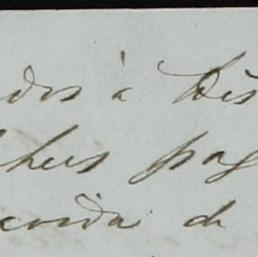 dos à Dis
lhes pag
corida de